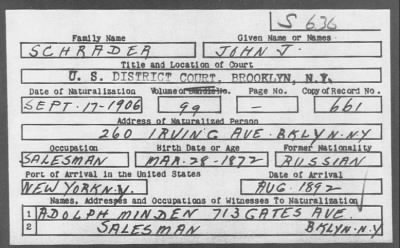 S 636
Family Name Given Name or Names
SCHRADER JOHN J.
Title and Location of Court
U. S. DISTRICT COURT, BROOKLYN, N.Y.
Date of Naturalization Volume or Bundle No. Page No. Copy of Record No.
SEPT. 17-1906 99 — 661
Address of Naturalized Person
260 IRVING AVE. BKLYN-NY
Occupation Birth Date or Age Former Nationality
SALESMAN MAR-28-1872 RUSSIAN
Port of Arrival in the United States Date of Arrival
NEW YORK N.Y. AUG. 1892
Names, Addresses and Occupations of Witnesses To Naturalization
1 ADOLPH MINDEN 713 GATES AVE.
2 SALESMAN BKLYN-N.Y